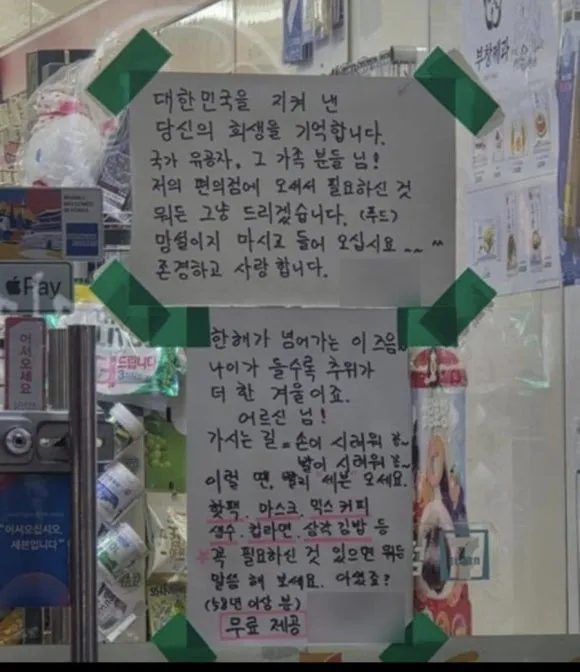 대한민국을 지켜 낸
당신의 희생을 기억합니다.
국가 유공자, 그 가족 분들 님!
저의 편의점에 오셔서 필요하신 것
뭐든 그냥 드리겠습니다. (푸드)
망설이지 마시고 들어 오십시요~~ ^^
존경하고 사랑 합니다.
한해가 넘어가는 이 즈음~
나이가 들수록 추위가
더 한 겨울이죠.
어르신 님!
가시는 길 = 손이 시려워 꽁~
발이 시려워 꽁~
이럴 땐, 빨리 세븐 오세요.
핫팩. 마스크. 믹스 커피
생수. 컵라면. 삼각 김밥 등
* 꼭 필요하신 것 있으면 뭐든
말씀 해 보세요. 아셨죠?
(58년 이상 분)
무료 제공
부창제과
Pay
어서오세요
드립니다
"어서오십시오,
세븐입니다"